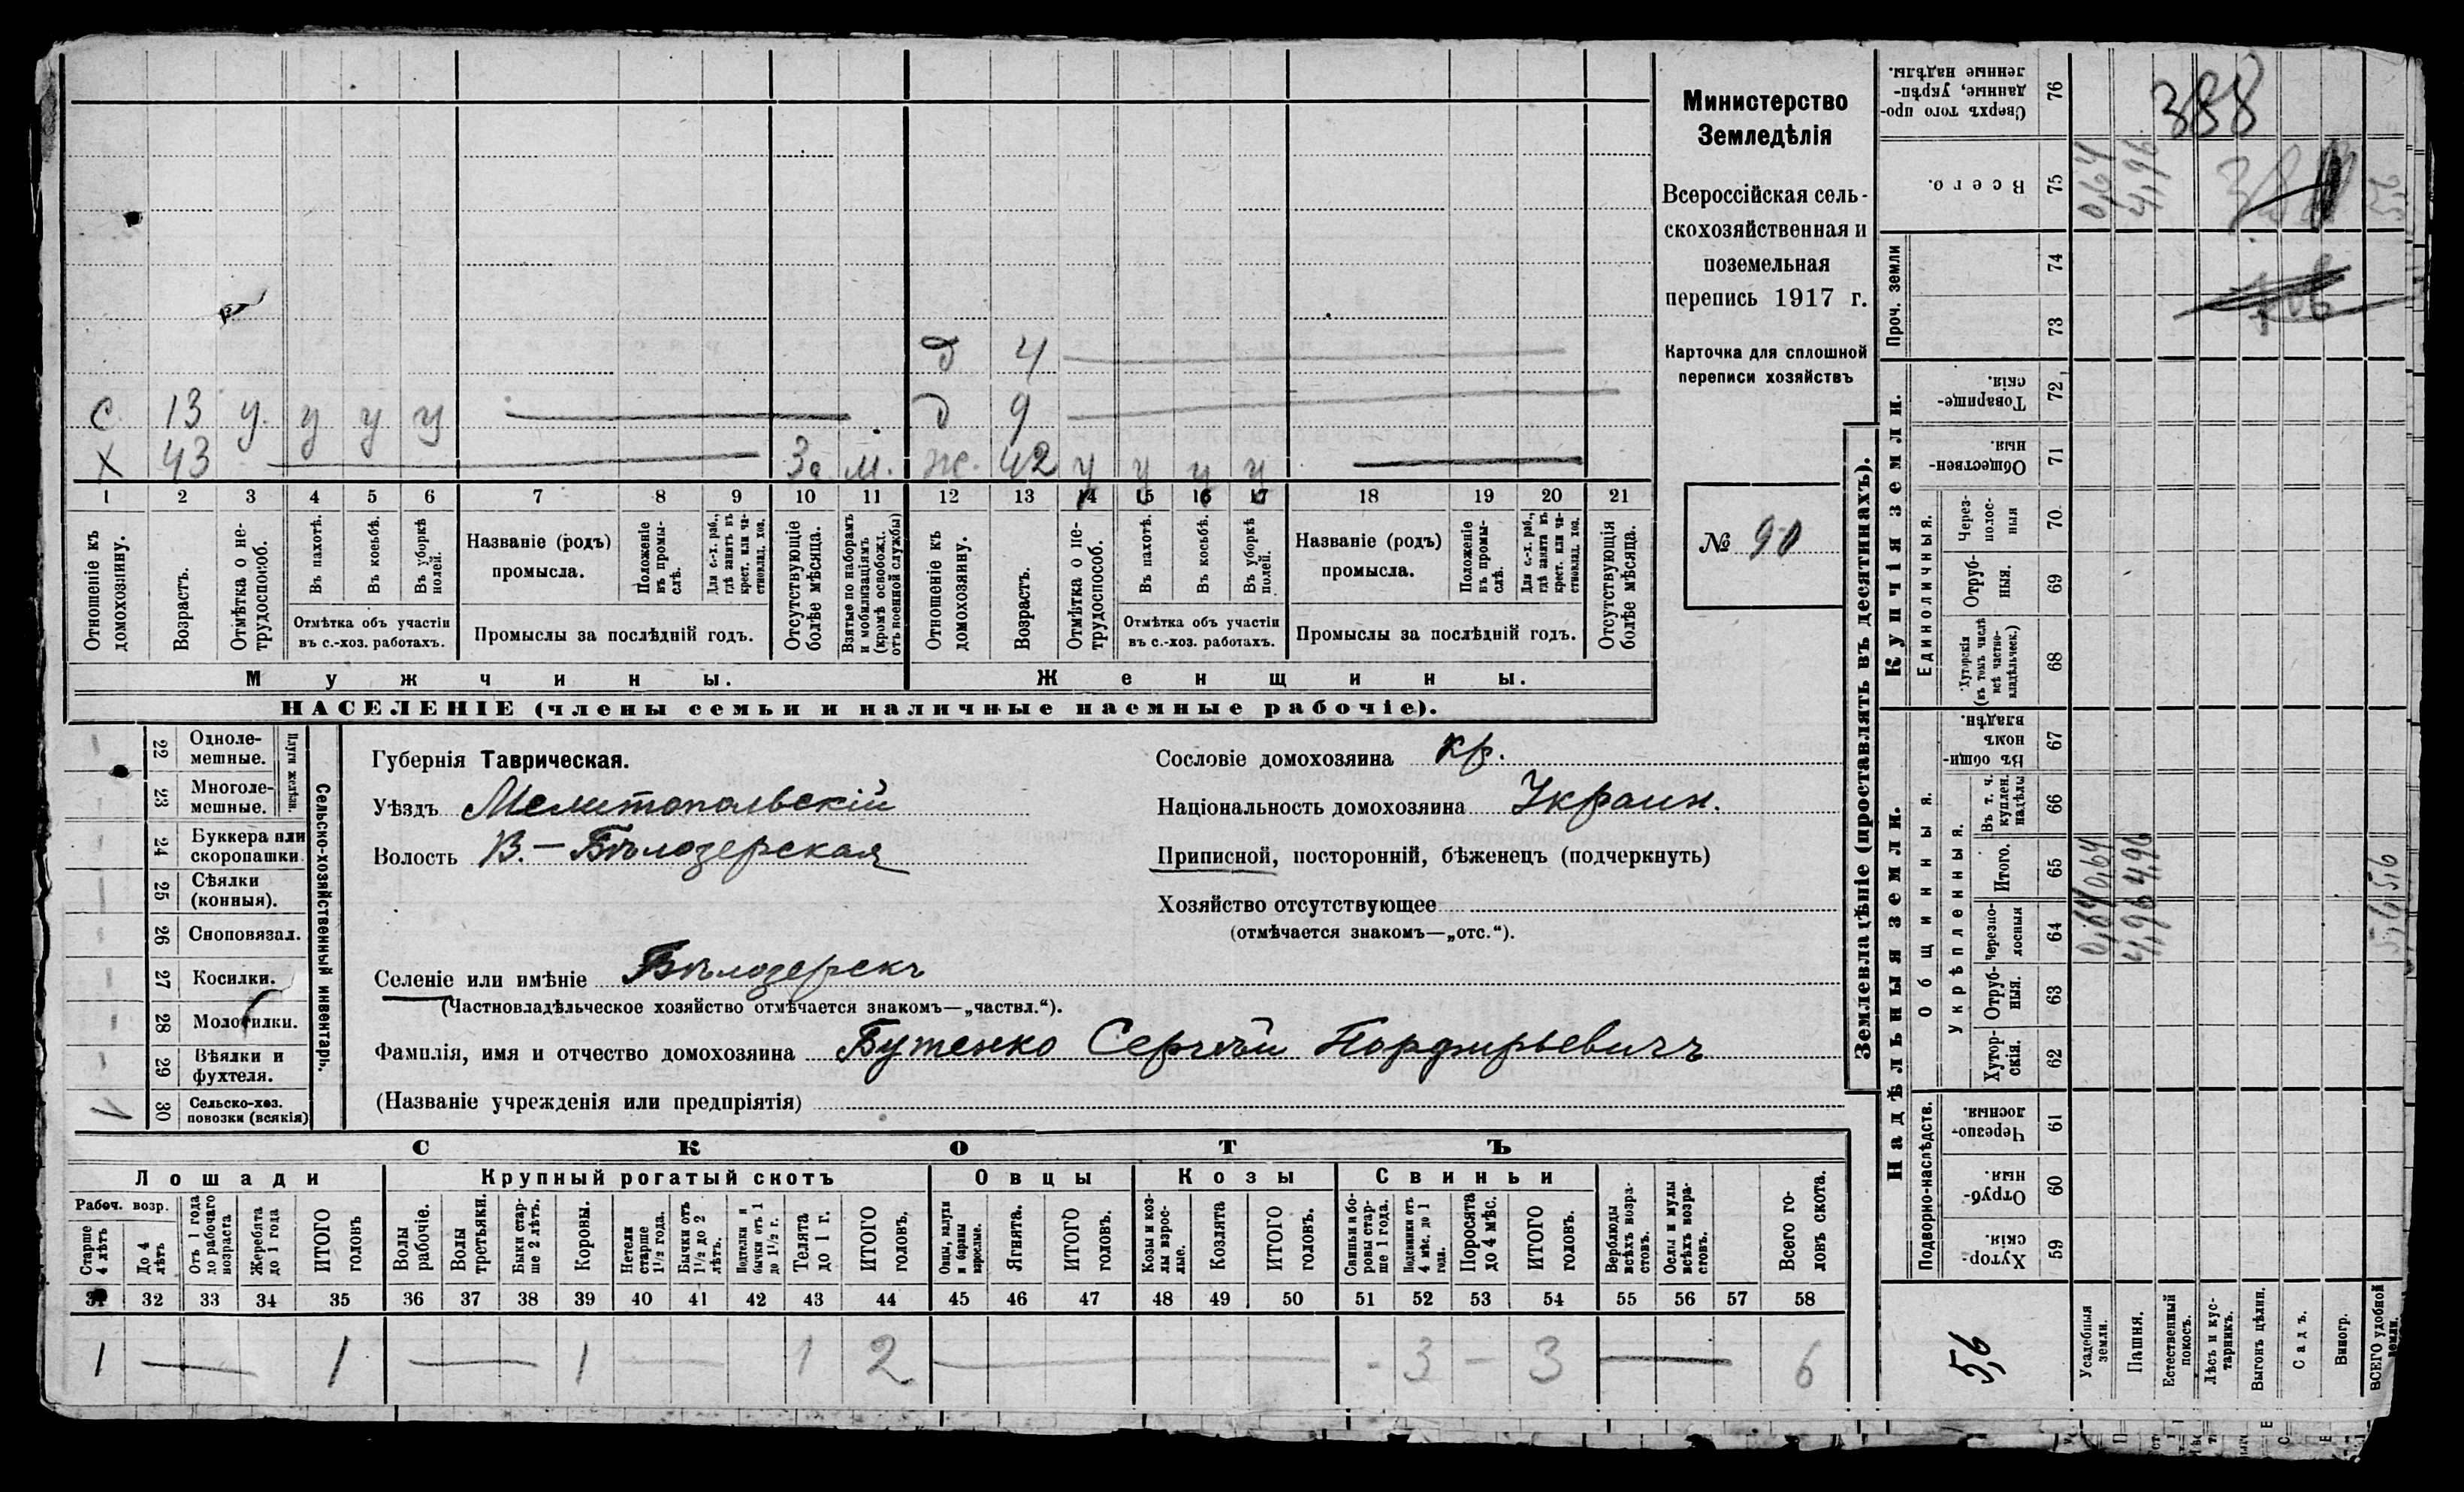 Министерство
Земледѣлія
Всероссійская сель-
скохозяйственная и
поземельная
перепись 1917 г.
Карточка для сплошной
переписи хозяйствъ
№ 90
д 4
с. 13 у. у у у д 9
х 43 За м. ж. 42 у у у у
1 2 3 4 5 6 7 8 9 10 11 12 13 14 15 16 17 18 19 20 21
Отношеніе къ домохозяину.
Возрастъ.
Отмѣтка о не-
трудоспособ.
Въ пахотѣ.
Въ косьбѣ.
Въ уборкѣ полей.
Отмѣтка объ участіи
въ с.-хоз. работахъ.
Названіе (родъ)
промысла.
Положеніе
въ промы-
слѣ.
Для с.-х. раб.,
гдѣ занятъ въ
крест. или ча-
стновлад. хоз.
Промыслы за послѣдній годъ.
Отсутствующіе
болѣе мѣсяца.
Взятые по наборамъ
и мобилизаціямъ
(кромѣ освобожд.
отъ военной службы)
Отношеніе къ
домохозяину.
Возрастъ.
Отмѣтка о не-
трудоспособ.
Въ пахотѣ.
Въ косьбѣ.
Въ уборкѣ
полей.
Отмѣтка объ участіи
въ с.-хоз. работахъ.
Названіе (родъ)
промысла.
Положеніе
въ промы-
слѣ.
Для с.-х. раб.,
гдѣ занята въ
крест. или ча-
стновлад. хоз.
Промыслы за послѣдній годъ.
Отсутствующія
болѣе мѣсяца.
Мужчины.
Женщины.
НАСЕЛЕНІЕ (члены семьи и наличные наемные рабочіе).
Сельско-хозяйственный инвентарь.
Плуги желѣзн.
22 Одноле-
мешные.
23 Многоле-
мешные.
24 Буккера или
скоропашки.
25 Сѣялки
(конныя).
26 Сноповязал.
27 Косилки.
28 Молотилки.
29 Вѣялки и
фухтеля.
30 Сельско-хоз.
повозки (всякія)
Губернія Таврическая.
Уѣздъ Мелитопольскій
Волость В.-Бѣлозерская
Сословіе домохозяина кр.
Національность домохозяина Украин.
Приписной, посторонній, бѣженецъ (подчеркнуть)
Хозяйство отсутствующее
(отмѣчается знакомъ—„отс.“).
Селеніе или имѣніе Бѣлозерскъ
(Частновладѣльческое хозяйство отмѣчается знакомъ—„частвл.“).
Фамилія, имя и отчество домохозяина Бутенко Сергѣй Порфирьевичъ
(Названіе учрежденія или предпріятія)
СКОТЪ
Лошади
Крупный рогатый скотъ
Овцы
Козы
Свиньи
Рабоч. возр.
Старше
4 лѣтъ
До 4
лѣтъ
Отъ 1 года
до рабочаго
возраста
Жеребята
до 1 года
ИТОГО
головъ
Волы
рабочіе.
Волы
третьяки.
Быки стар-
ше 2 лѣтъ.
Коровы.
Нетели
старше
1½ года.
Бычки отъ
1½ до 2
лѣтъ.
Подтелки и
бычки отъ 1
до 1½ г.
Телята
до 1 г.
ИТОГО
головъ.
Овцы, валухи
и бараны
взрослые.
Ягнята.
ИТОГО
головъ.
Козы и коз-
лы взрос-
лые.
Козлята
ИТОГО
головъ.
Свиньи и бо-
ровы стар-
ше 1 года.
Подсвинки отъ
4 мѣс. до 1
года.
Поросята
до 4 мѣс.
ИТОГО
головъ.
Верблюды
всѣхъ возра-
стовъ.
Ослы и мулы
всѣхъ возра-
стовъ.
Всего го-
ловъ скота.
31 32 33 34 35 36 37 38 39 40 41 42 43 44 45 46 47 48 49 50 51 52 53 54 55 56 57 58
1 — 1 — 1 — 1 2 — - 3 - 3 — 6
Землевладѣніе (проставлять въ десятинахъ).
Сверхъ того про-
данные, укрѣп-
ленные надѣлы.
76
388
Всего.
75
0,64
4,96
Проч. земли
74
73
Купчія земли.
Товарище-
скія.
72
Обществен-
ныя.
71
Единоличныя.
Через-
полос-
ныя
70
Отруб-
ныя.
69
Хуторскія
(въ томъ числѣ
всѣ частно-
владѣльческ.)
68
Надѣльныя земли.
Общинныя.
Въ общи-
номъ
владѣн.
67
Укрѣпленныя.
Въ т. ч.
куплен.
надѣлы
66
Итого.
65
0,64
4,96
5,6
Черезпо-
лосныя
64
0,64
4,96
5,6
Отруб-
ныя.
63
Хутор-
скія.
62
Подворно-наслѣдств.
Черезпо-
лосныя.
61
Отруб-
ныя.
60
Хутор-
скія.
59
5,6
Усадебныя
земли.
Пашня.
Естественный
покосъ.
Лѣсъ и кус-
тарникъ.
Выгонъ цѣлин.
Садъ.
Виногр.
ВСЕГО удобной
земли.